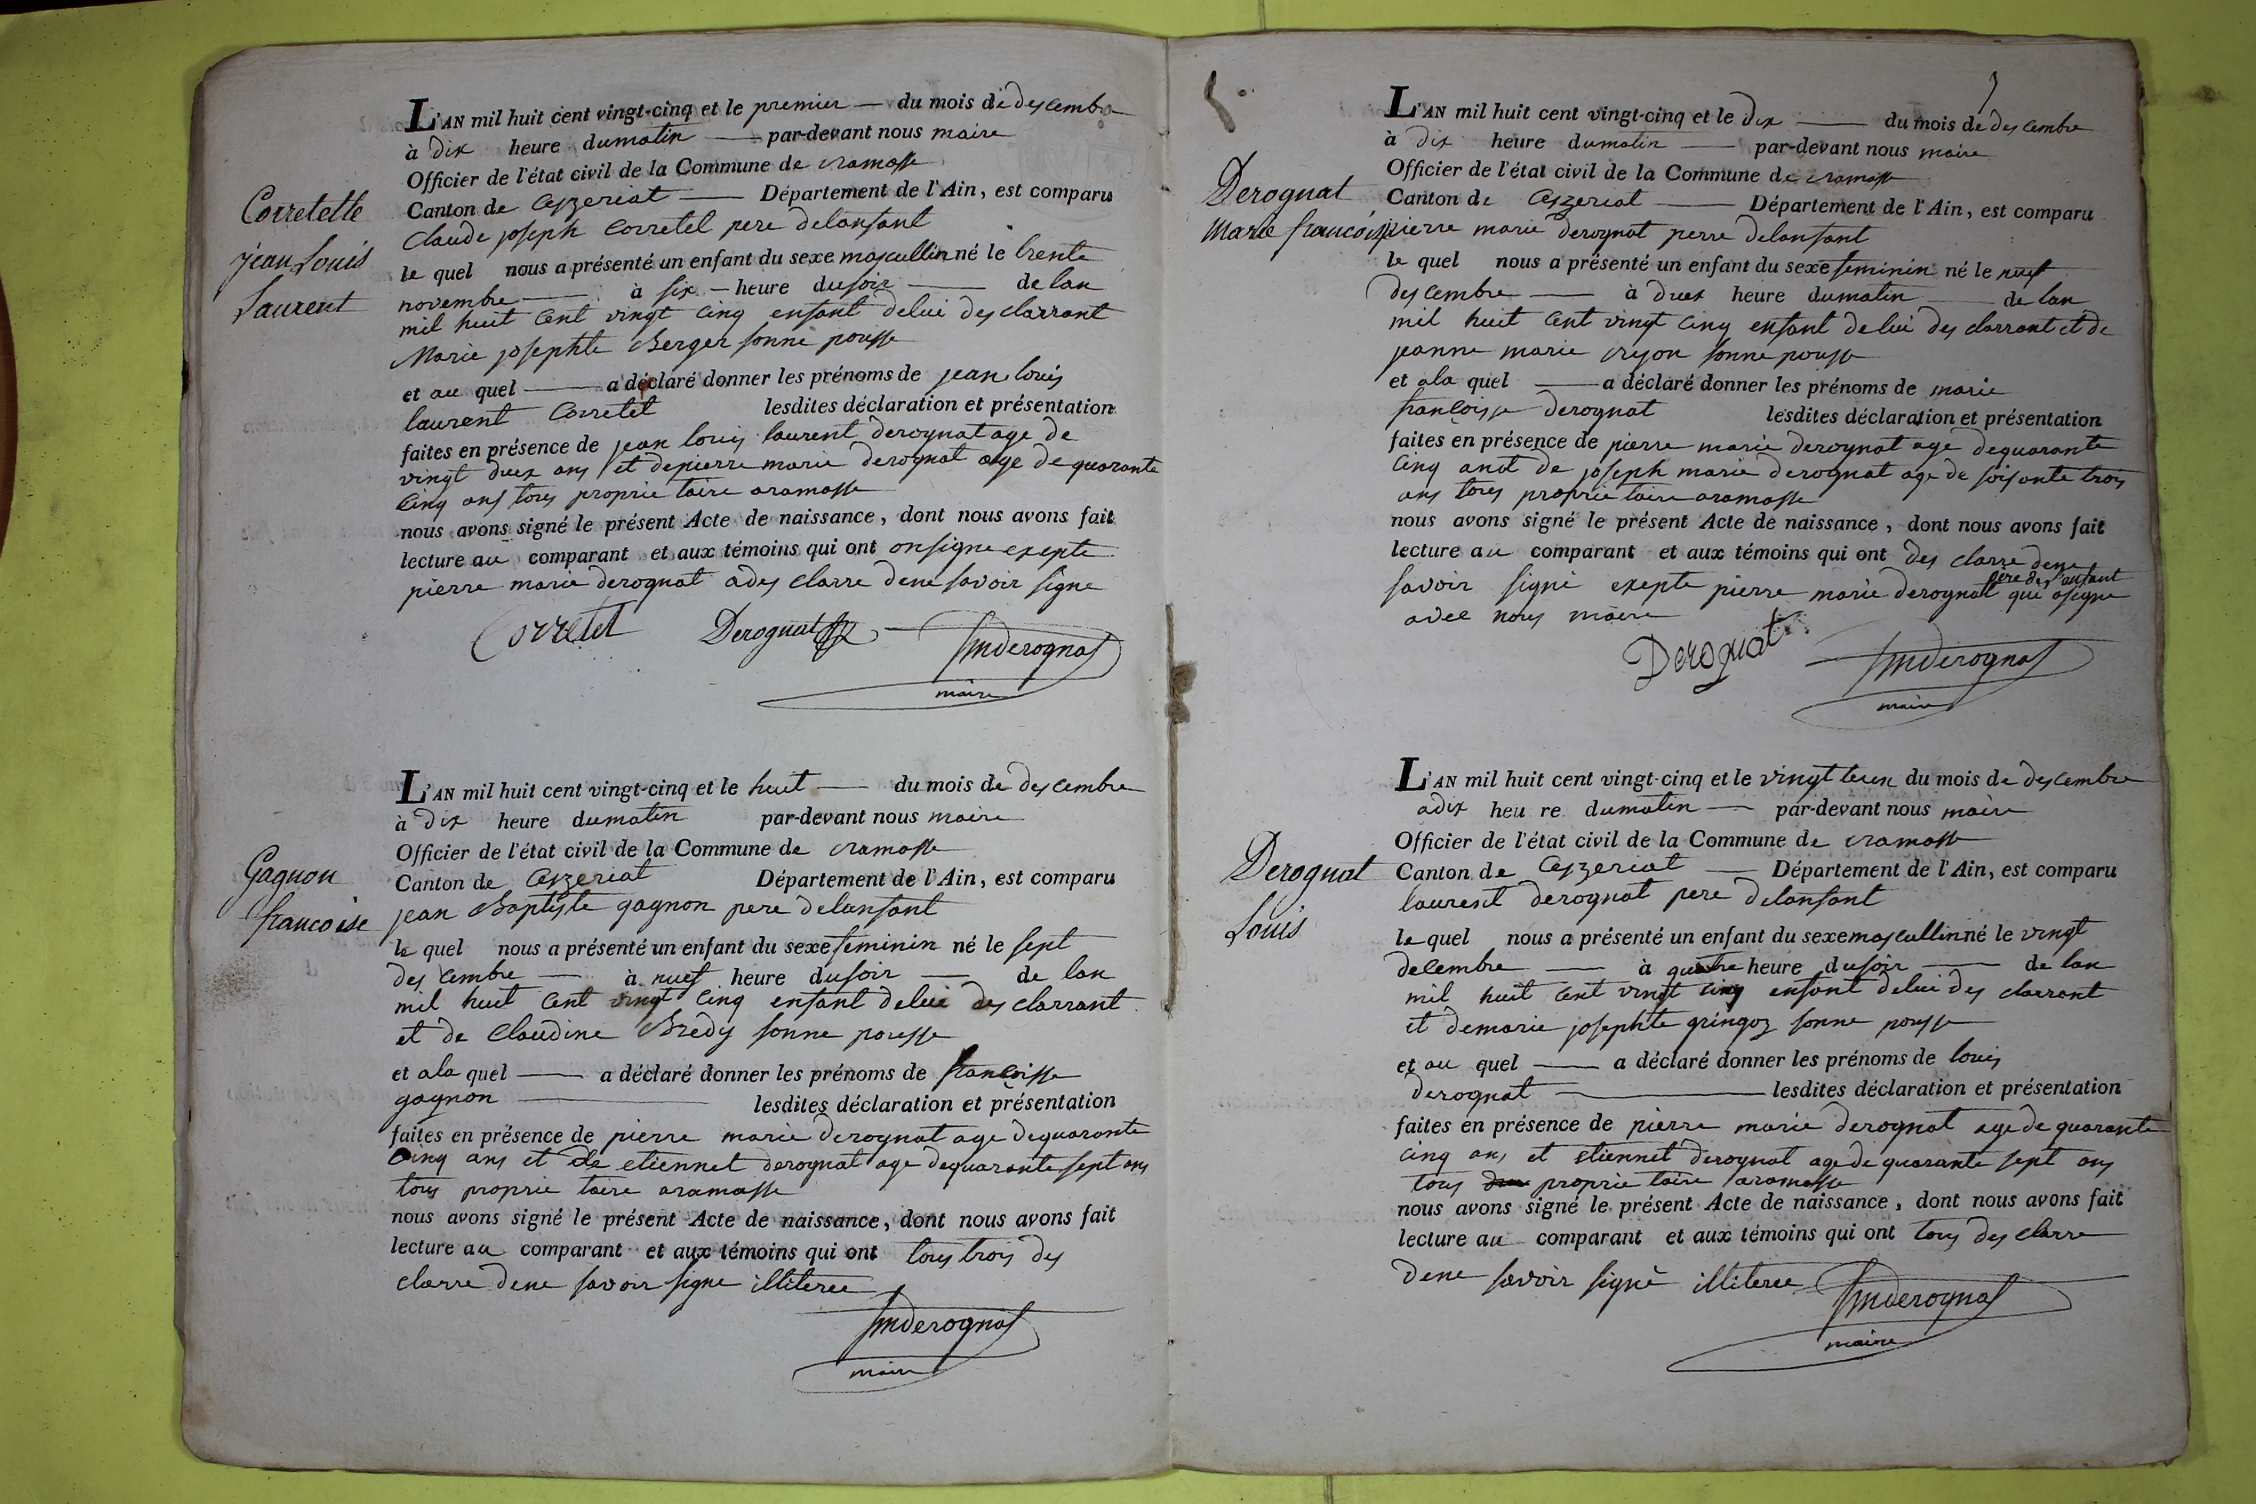 L'AN mil huit cent vingt-cinq et le premier — du mois de descembre
à dix heure dumatin — par-devant nous maire
Officier de l'état civil de la Commune de ramasse
Canton de Ceyzeriat — Département de l'Ain, est comparu
Correlette
jean Louis
Laurent
Claude joseph Corretel pere delanfant
le quel nous a présenté un enfant du sexe mascullin né le trente
novembre — à six — heure dusoir — de lan
mil huit cent vingt cinq enfant delui desclarrant
Marie josephte Berger sonne pousse
et au quel — a déclaré donner les prénoms de jean louis
laurent Corretel lesdites déclaration et présentation
faites en présence de jean louis laurent derognat age de
vingt deux ans et depierre marie derognat age de quarante
cinq ans tous proprietaire aramasse
nous avons signé le présent Acte de naissance, dont nous avons fait
lecture au comparant et aux témoins qui ont onsigne exepte
pierre marie derognat a des clarre dene savoir signe
Corretel Derognat jmderognat
maire
L'AN mil huit cent vingt-cinq et le huit — du mois de descembre
à dix heure dumatin par-devant nous maire
Officier de l'état civil de la Commune de ramasse
Canton de Ceyzeriat Département de l'Ain, est comparu
Gagnon
francoise
jean Baptiste gagnon pere delanfant
le quel nous a présenté un enfant du sexe feminin né le sept
descembre — à nuef heure dusoir — de lan
mil huit cent vingt cinq enfant delui desclarrant
et de Claudine Bredy sonne pousse
et ala quel — a déclaré donner les prénoms de francoisse
gagnon — lesdites déclaration et présentation
faites en présence de pierre marie derognat age dequarante
cinq ans et de etiennet derognat age dequarante sept ans
tous proprie taire aramasse
nous avons signé le présent Acte de naissance, dont nous avons fait
lecture au comparant et aux témoins qui ont tous trois des
clarre dene savoir signe illiteree
jmderognat
maire
L'AN mil huit cent vingt-cinq et le dix — du mois de descembre
à dix heure dumatin — par-devant nous maire
Officier de l'état civil de la Commune de ramasse
Canton de Ceyzeriat — Département de l'Ain, est comparu
Derognat
Marie francoise
pierre marie derognat perre delanfant
le quel nous a présenté un enfant du sexe feminin né le nuef
descembre — à deux heure dumatin — de lan
mil huit cent vingt cinq enfant delui des clarrant et de
jeanne marie sonne pousse
et ala quel — a déclaré donner les prénoms de marie
françoisse derognat lesdites déclaration et présentation
faites en présence de pierre marie derognat age dequarante
cinq anet de joseph marie derognat age de soisante trois
ans tous proprie taire aramasse
nous avons signé le présent Acte de naissance, dont nous avons fait
lecture au comparant et aux témoins qui ont des clarre dene
savoir signé exepte pierre marie derognat père de l'enfant qui asigne
avec nous maire
Derognat jmderognat
maire
L'AN mil huit cent vingt-cinq et le vingt teun du mois de descembre
adix heure dumatin — par-devant nous maire
Officier de l'état civil de la Commune de ramasse
Canton de Ceyzeriat — Département de l'Ain, est comparu
Derognat
Louis
laurent derognat pere delanfant
le quel nous a présenté un enfant du sexe mascullin né le vingt
decembre — à quatre heure dusoir — de lan
mil huit cent vingt cinq enfant delui des clarrent
et demarie josephte gringoz sonne pousse
et au quel — a déclaré donner les prénoms de louis
derognat — lesdites déclaration et présentation
faites en présence de pierre marie derognat age de quarante
cinq ans et etiennet derognat age de quarante sept ans
tous proprie taire aramasse
nous avons signé le présent Acte de naissance, dont nous avons fait
lecture au comparant et aux témoins qui ont tous des clarre
dene savoir signè illiteree jmderognat
maire